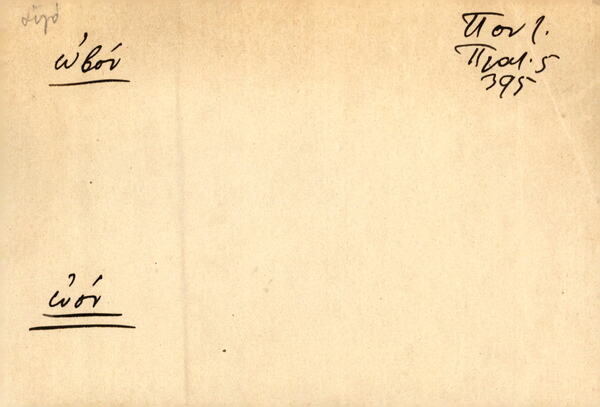 αὐγό
ὠβόν
Ποντ.
Πλατ. 5
395
ὠόν